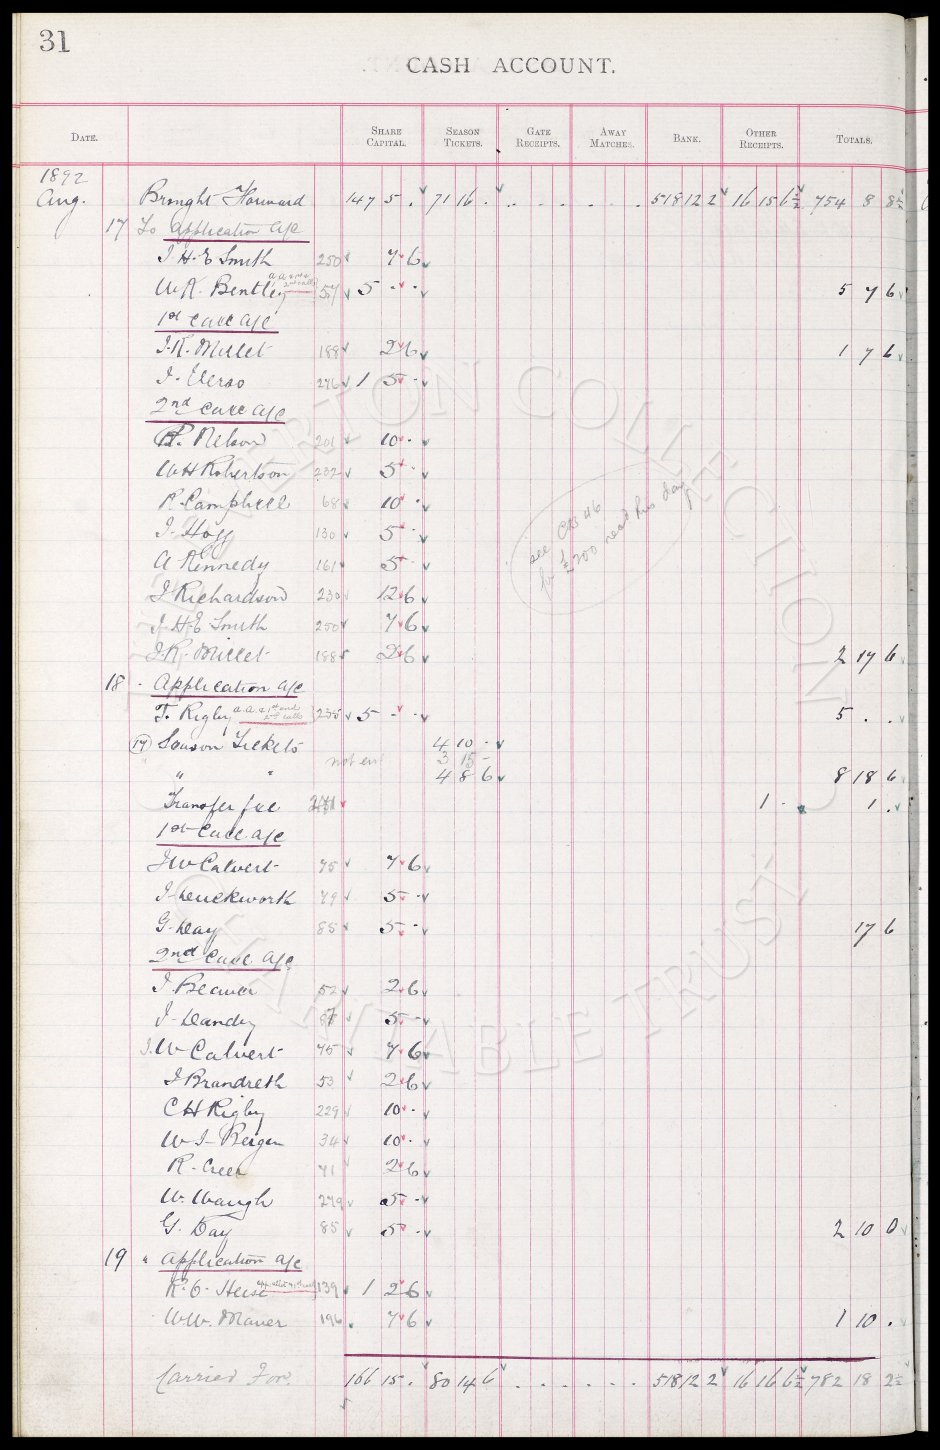 31
CASH ACCOUNT.
DATE. SHARE CAPITAL. SEASON TICKETS. GATE RECEIPTS. AWAY MATCHES. BANK. OTHER RECEIPTS. TOTALS.
1892
Aug. Brought Forward 147 5 . 71 16 . .. . . . . . 518 12 2 16 15 6½ 754 8 8½
17 To Application a/c
J. H. E Smith 250 7 6
W. R. Bentley a.a. & 1st & 2nd calls 57 5 - - 5 7 6
1st Call a/c
J. R. Millet 188 2 6 1 7 6
J. Elerso 276 1 5 -
2nd Call a/c
R. Nelson 201 10 -
W H Robertson 232 5 -
R. Campbell 68 10 -
J. Hogg 130 5 -
A Kennedy 161 5 -
J Richardson 230 12 6
J. H. E. Smith 250 7 6
J. R. Millet 188 2 6 2 17 6
see CB 46
for £200 rec'd this day
18 - Application a/c
T. Rigby a.a. & 1st and 2nd calls 235 5 - - 5 . .
(17) Season Tickets 4 10 -
" not ent 3 15 -
" " 4 8 6 8 18 6
Transfer fee 1 - 1 .
1st Call a/c
J W Calvert 75 7 6
J. Duckworth 79 5 -
G. Day 85 5 - 17 6
2nd Call a/c
J. Beaver 52 2 6
J. Dandy 87 5 -
J. W Calvert 75 7 6
J Brandreth 53 2 6
C H Rigby 229 10 -
W. J. Bergen 34 10 -
R. Creer 71 2 6
W. Waugh 279 5 -
G. Day 85 5 - 2 10 0
19 " Application a/c
R. C. Heise 139 1 2 6
W. W. Maver 196 7 6 1 10 .
Carried For. 166 15 . 80 14 6 . . . . . . 518 12 2 16 16 6½ 782 18 2½
EVERTON COLLECTION
CHARITABLE TRUST